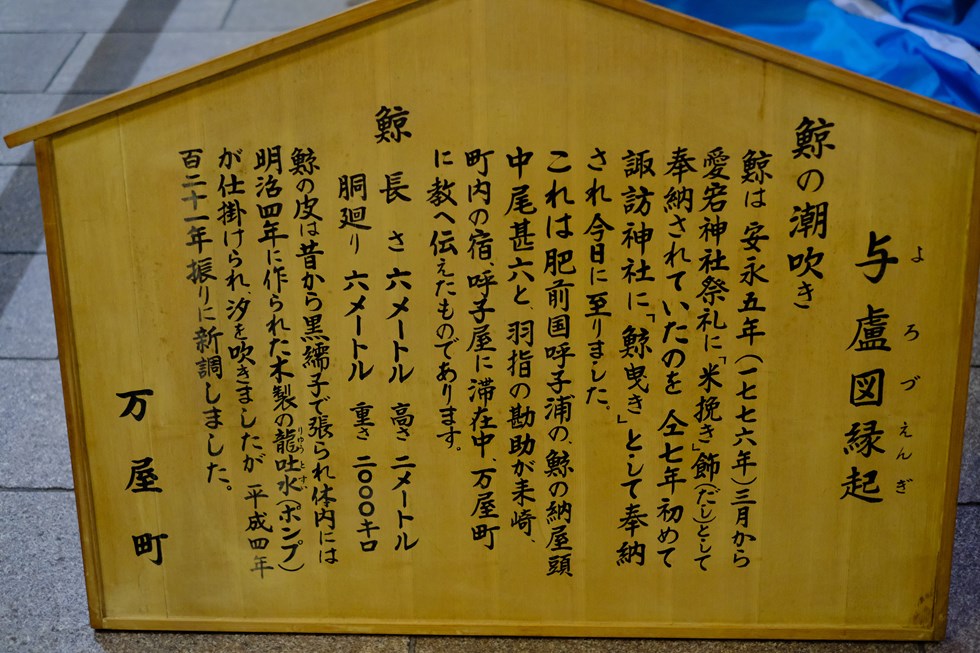 与盧図縁起
よろづえんぎ
鯨の潮吹き
鯨は 安永五年(一七七六年)三月から
愛宕神社祭礼に「米挽き」飾(だし)として
奉納されていたのを 仝七年初めて
諏訪神社に「鯨曳き」として奉納
され今日に至りました。
これは肥前国呼子浦の、鯨の納屋頭
中尾甚六と、羽指の勘助が来崎、
町内の宿、呼子屋に滞在中、万屋町
に教へ伝えたものであります。
鯨 長さ 六メートル 高さ 二メートル
胴廻り 六メートル 重さ 二〇〇〇キロ
鯨の皮は昔から黒繻子で張られ体内には
明治四年に作られた木製の龍吐水(ポンプ)
りゅうとすい
が仕掛けられ、汐を吹きましたが 平成四年
百二十一年振りに新調しました。
万屋町